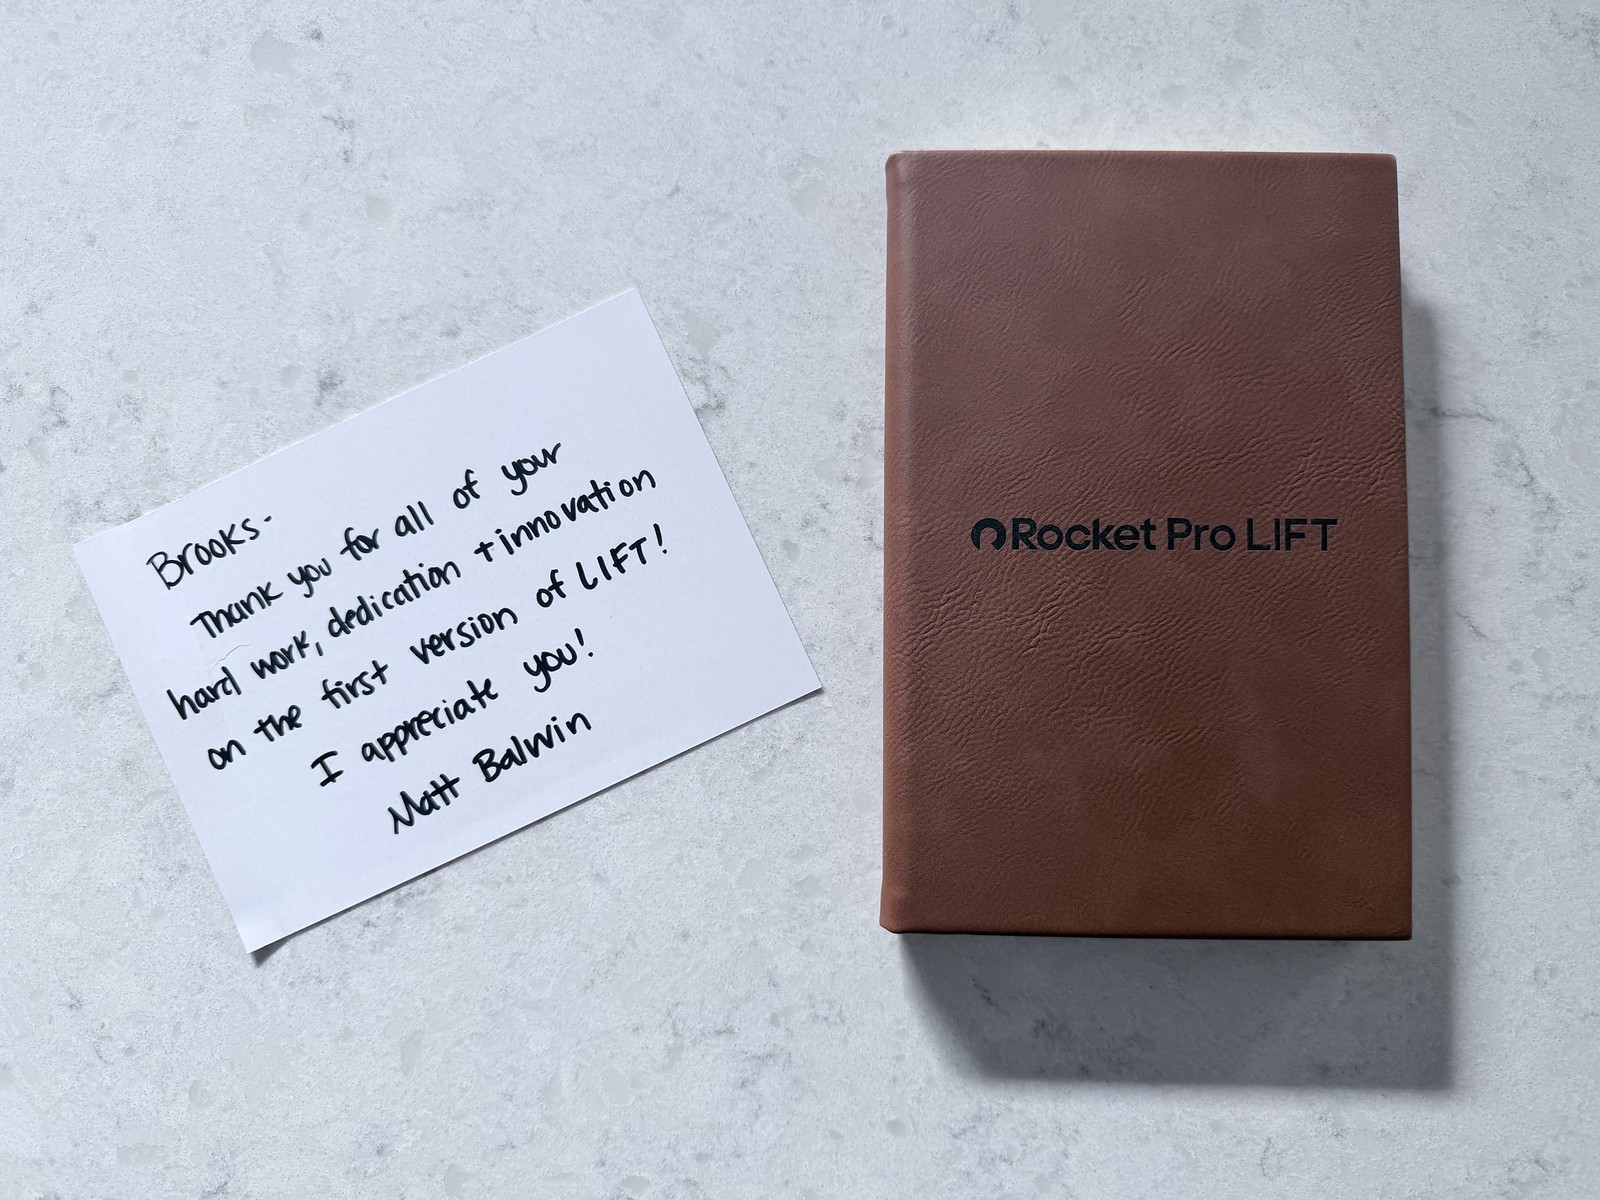 Brooks-
Thank you for all of your
hard work, dedication + innovation
on the first version of LIFT!
I appreciate you!
Matt Balwin
Rocket Pro LIFT